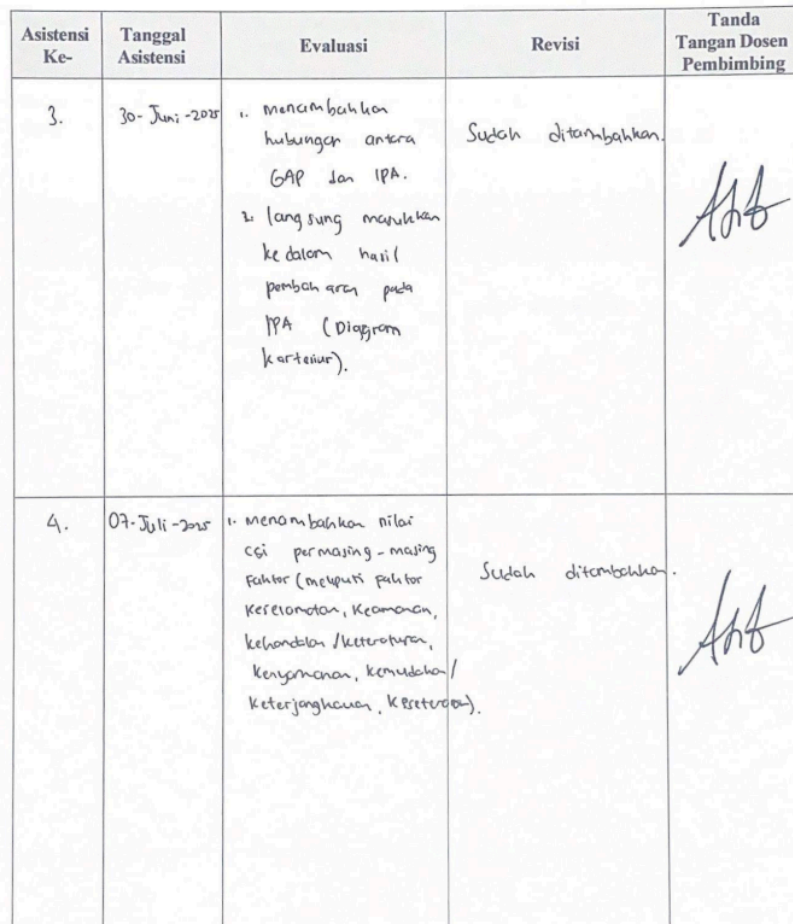 Asistensi Ke-
Tanggal Asistensi
Evaluasi
Revisi
Tanda Tangan Dosen Pembimbing
3.
30-Juni-2025
1. menambahkan
hubungan antara
GAP dan IPA.
2. langsung masukkan
kedalam hasil
pembahasan pada
IPA (Diagram
kartesius).
Sudah ditambahkan.
4.
07-Juli-2025
1. menambahkan nilai
csi permasing-masing
faktor (meliputi faktor
keselamatan, keamanan,
kehandalan/keteraturan,
kenyamanan, kemudahan/
keterjangkauan, kesetaraan).
Sudah ditambahkan.